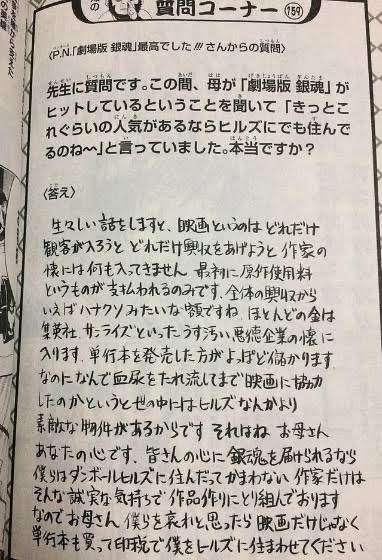 の
質問コーナー
159
〈P.N.「劇場版 銀魂」最高でした!!!さんからの質問〉
先生に質問です。この間、母が「劇場版 銀魂」が
ヒットしているということを聞いて「きっとこ
れぐらいの人気があるならヒルズにでも住んで
るのね〜」と言っていました。本当ですか？
〈答え〉
生々しい話をしますと、映画というのは どれだけ
観客が入ろうと どれだけ興収をあげようと 作家の
懐には何も入ってきません 最初に原作使用料
というものが支払われるのみです。全体の興収から
いえばハナクソみたいな額ですね、ほとんどの金は
集英社、サンライズといったうす汚い悪徳企業の懐に
入ります。単行本を発売した方がよっぽど儲かります。
なのになんで血尿をたれ流してまで映画に協力
したのかというと世の中にはヒルズなんかより
素敵な物件があるからです それはね お母さん
あなたの心です、皆さんの心に 銀魂を届けられるなら
僕らはダンボールヒルズに住んだってかまわない 作家だけは
そんな誠実な気持ちで作品作りにとり組んでおります
なのでお母さん、僕らを哀れと思ったら映画だけじゃなく
単行本も買って印税で僕をヒルズに住まわせてください